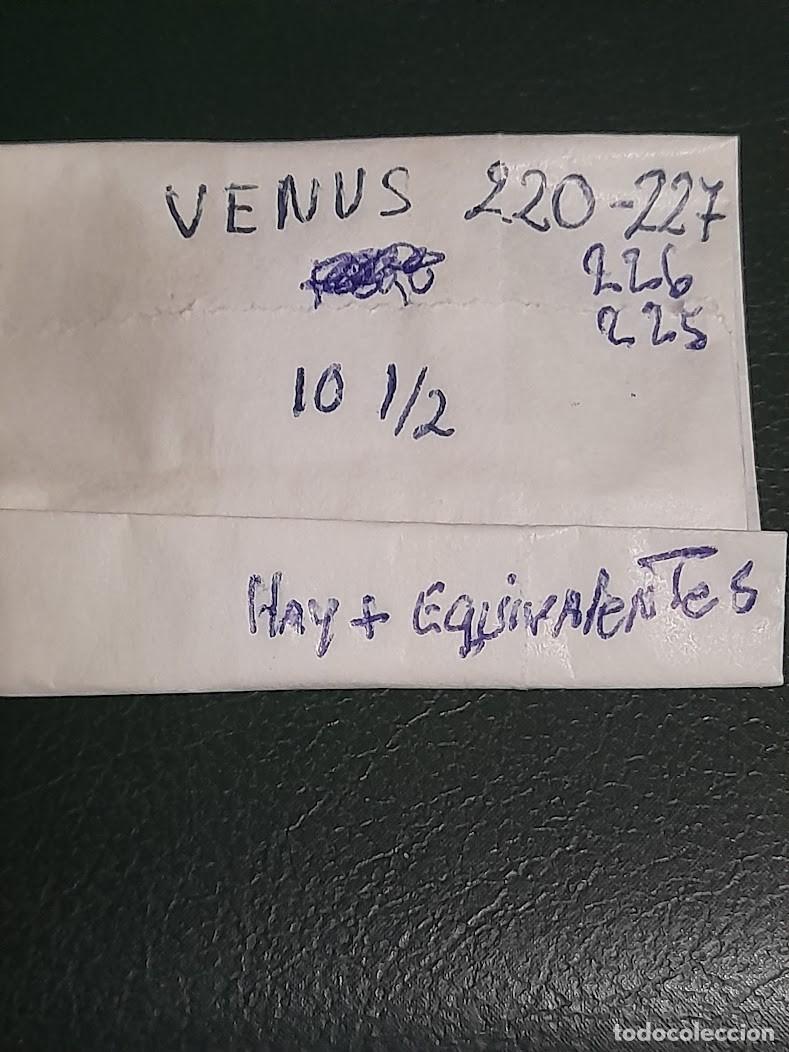 VENUS 220-227
226
225
10 1/2
HAY + EQUIVAlENTeS
todocoleccion